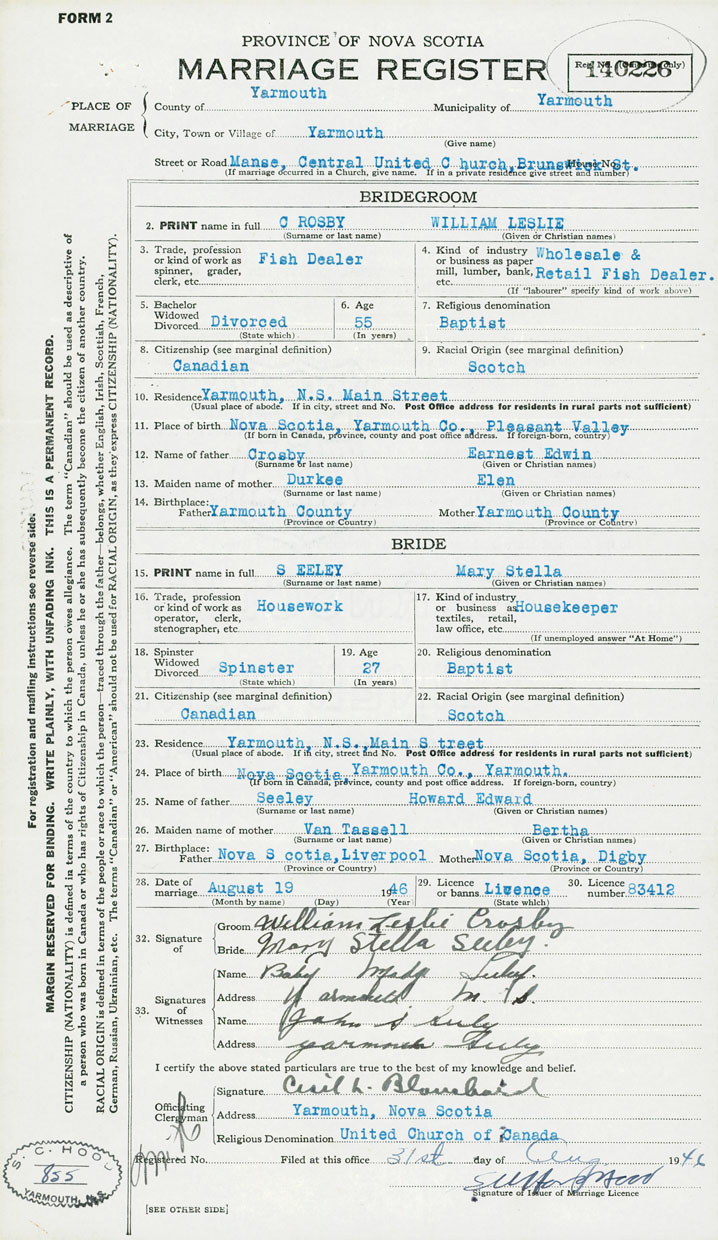 FORM 2
PROVINCE OF NOVA SCOTIA
MARRIAGE REGISTER
Reg'l No. (Office use only)
140226
PLACE OF MARRIAGE
County of Yarmouth Municipality of Yarmouth
City, Town or Village of Yarmouth
(Give name)
Street or Road Manse, Central United C hurch, Brunswick St. House No.
(If marriage occurred in a Church, give name. If in a private residence give street and number)
BRIDEGROOM
2. PRINT name in full C ROSBY WILLIAM LESLIE
(Surname or last name) (Given or Christian names)
3. Trade, profession or kind of work as spinner, grader, clerk, etc. Fish Dealer
4. Kind of industry or business as paper mill, lumber, bank, etc. Wholesale & Retail Fish Dealer.
(If "labourer" specify kind of work above)
5. Bachelor Widowed Divorced Divorced
(State which)
6. Age 55
(In years)
7. Religious denomination Baptist
8. Citizenship (see marginal definition) Canadian
9. Racial Origin (see marginal definition) Scotch
10. Residence Yarmouth, N.S. Main Street
(Usual place of abode. If in city, street and No. Post Office address for residents in rural parts not sufficient)
11. Place of birth Nova Scotia, Yarmouth Co., Pleasant Valley
(If born in Canada, province, county and post office address. If foreign-born, country)
12. Name of father Crosby Earnest Edwin
(Surname or last name) (Given or Christian names)
13. Maiden name of mother Durkee Elen
(Surname or last name) (Given or Christian names)
14. Birthplace: Father Yarmouth County Mother Yarmouth County
(Province or Country) (Province or Country)
BRIDE
15. PRINT name in full S EELEY Mary Stella
(Surname or last name) (Given or Christian names)
16. Trade, profession or kind of work as operator, clerk, stenographer, etc. Housework
17. Kind of industry or business as textiles, retail, law office, etc. Housekeeper
(If unemployed answer "At Home")
18. Spinster Widowed Divorced Spinster
(State which)
19. Age 27
(In years)
20. Religious denomination Baptist
21. Citizenship (see marginal definition) Canadian
22. Racial Origin (see marginal definition) Scotch
23. Residence Yarmouth, N.S., Main S treet
(Usual place of abode. If in city, street and No. Post Office address for residents in rural parts not sufficient)
24. Place of birth Nova Scotia, Yarmouth Co., Yarmouth.
(If born in Canada, province, county and post office address. If foreign-born, country)
25. Name of father Seeley Howard Edward
(Surname or last name) (Given or Christian names)
26. Maiden name of mother Van Tassell Bertha
(Surname or last name) (Given or Christian names)
27. Birthplace: Father Nova S cotia, Liverpool Mother Nova Scotia, Digby
(Province or Country) (Province or Country)
28. Date of marriage August 19 1946
(Month by name) (Day) (Year)
29. Licence or banns Licence
(State which)
30. Licence number 83412
32. Signature of
Groom William Leslie Crosby
Bride Mary Stella Seeley
33. Signatures of Witnesses
Name
Address Yarmouth N. S.
Name John S
Address Yarmouth
I certify the above stated particulars are true to the best of my knowledge and belief.
Officiating Clergyman
Signature Cecil L. Blanchard
Address Yarmouth, Nova Scotia
Religious Denomination United Church of Canada
Registered No. Filed at this office 31st day of Aug 1946
Signature of Issuer of Marriage Licence
[SEE OTHER SIDE]
S. C. HOOD
855
YARMOUTH, N.S.
For registration and mailing instructions see reverse side.
MARGIN RESERVED FOR BINDING. WRITE PLAINLY, WITH UNFADING INK. THIS IS A PERMANENT RECORD.
CITIZENSHIP (NATIONALITY) is defined in terms of the country to which the person owes allegiance. The term "Canadian" should be used as descriptive of
a person who was born in Canada or who has rights of Citizenship in Canada, unless he or she has subsequently become the citizen of another country.
RACIAL ORIGIN is defined in terms of the people or race to which the person—traced through the father—belongs, whether English, Irish, Scottish, French,
German, Russian, Ukrainian, etc. The terms "Canadian" or "American" should not be used for RACIAL ORIGIN, as they express CITIZENSHIP (NATIONALITY).